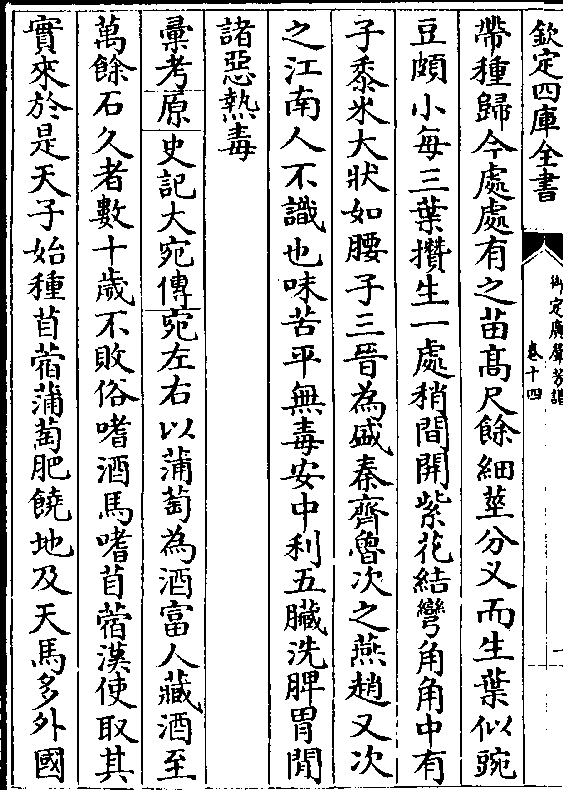 欽定四庫全書
御定廣羣芳譜
卷十四
帶種歸今處處有之苗髙尺餘細莖分义而生葉似豌
豆頗小每三葉攢生一處稍間開紫花結彎角角中有
子黍米大狀如腰子三晉為盛秦齊魯次之燕趙又次
之江南人不識也味苦平無毒安中利五臟洗脾胃間
諸惡熱毒
彚考原史記大宛傳宛左右以蒲萄為酒富人藏酒至
萬餘石久者數十歲不敗俗嗜酒馬嗜苜蓿漢使取其
實來於是天子始種苜蓿蒲萄肥饒地及天馬多外國